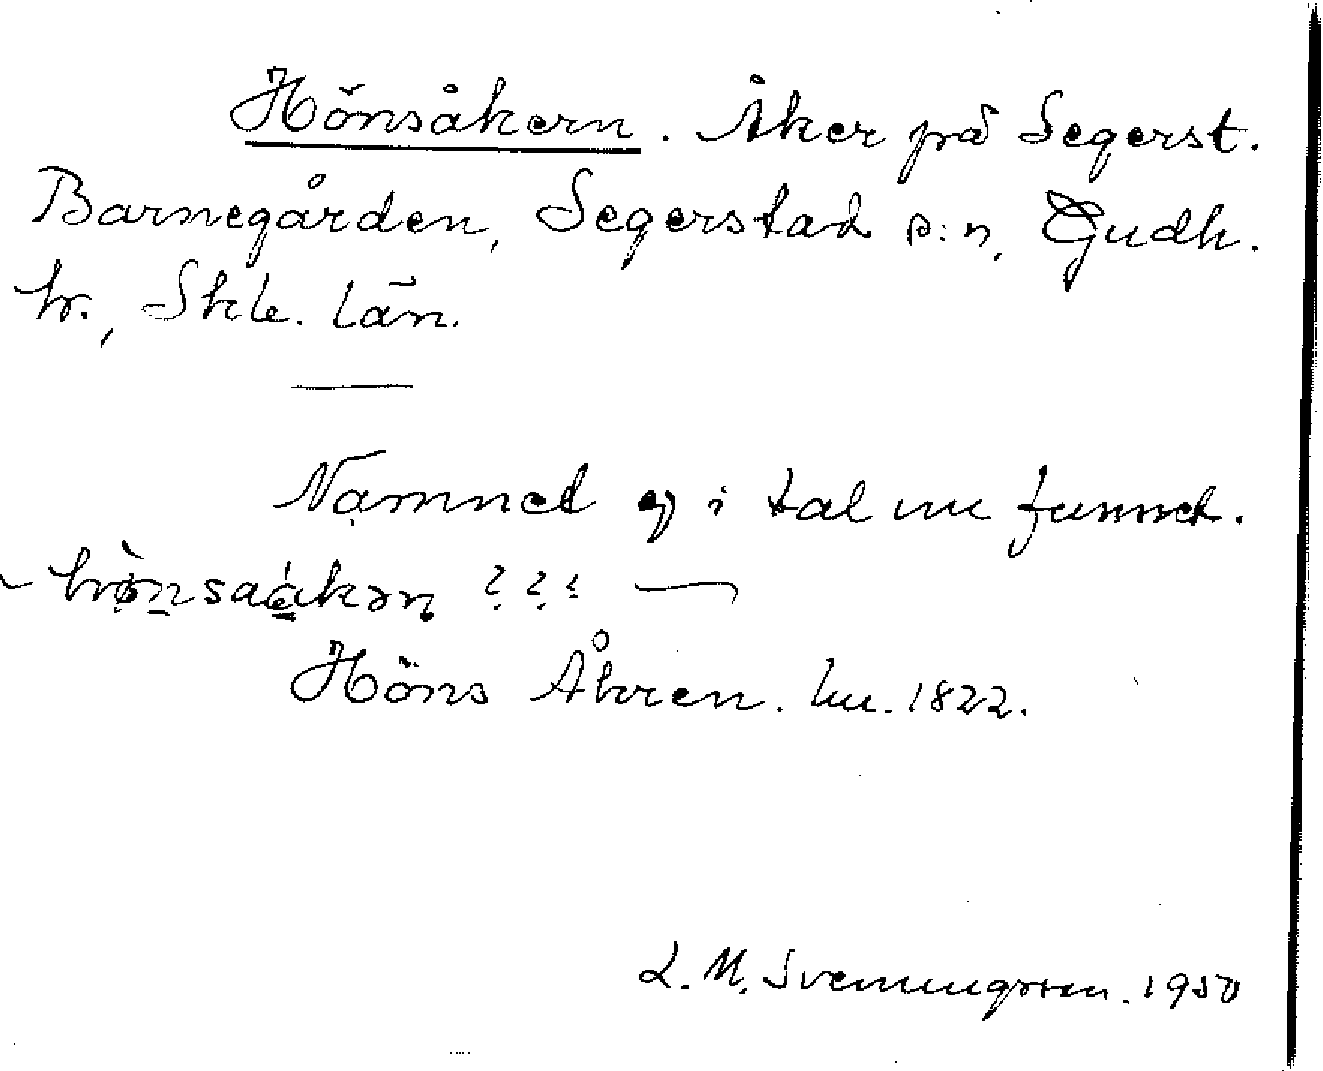 Hönsåkern. Åker på Segerst.
Barnegården, Segerstad s:n, Gudh.
hr., Skb. län.
Namnet ej i tal nu funnet.
??? —
Höns Åkren. hu. 1822.
L. M. Svenungsson. 1950